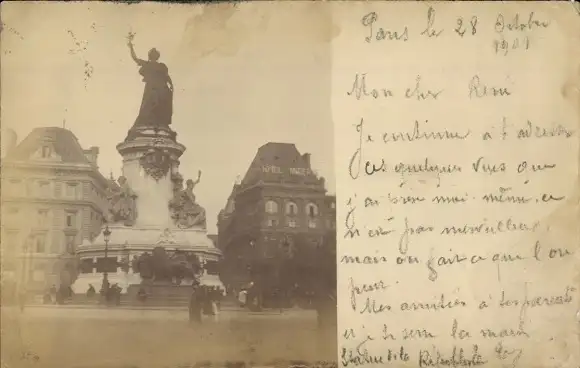 Paris le 28 Octobre
1901
Mon cher René
Je continue à t'adresser
ces quelques vues que
j'ai moi-même, ce
n'est pas merveilleux,
mais on fait ce que l'on
peut.
Mes amitiés à tes parents
et je te serre la main
Statue de la République
HOTEL MODERNE